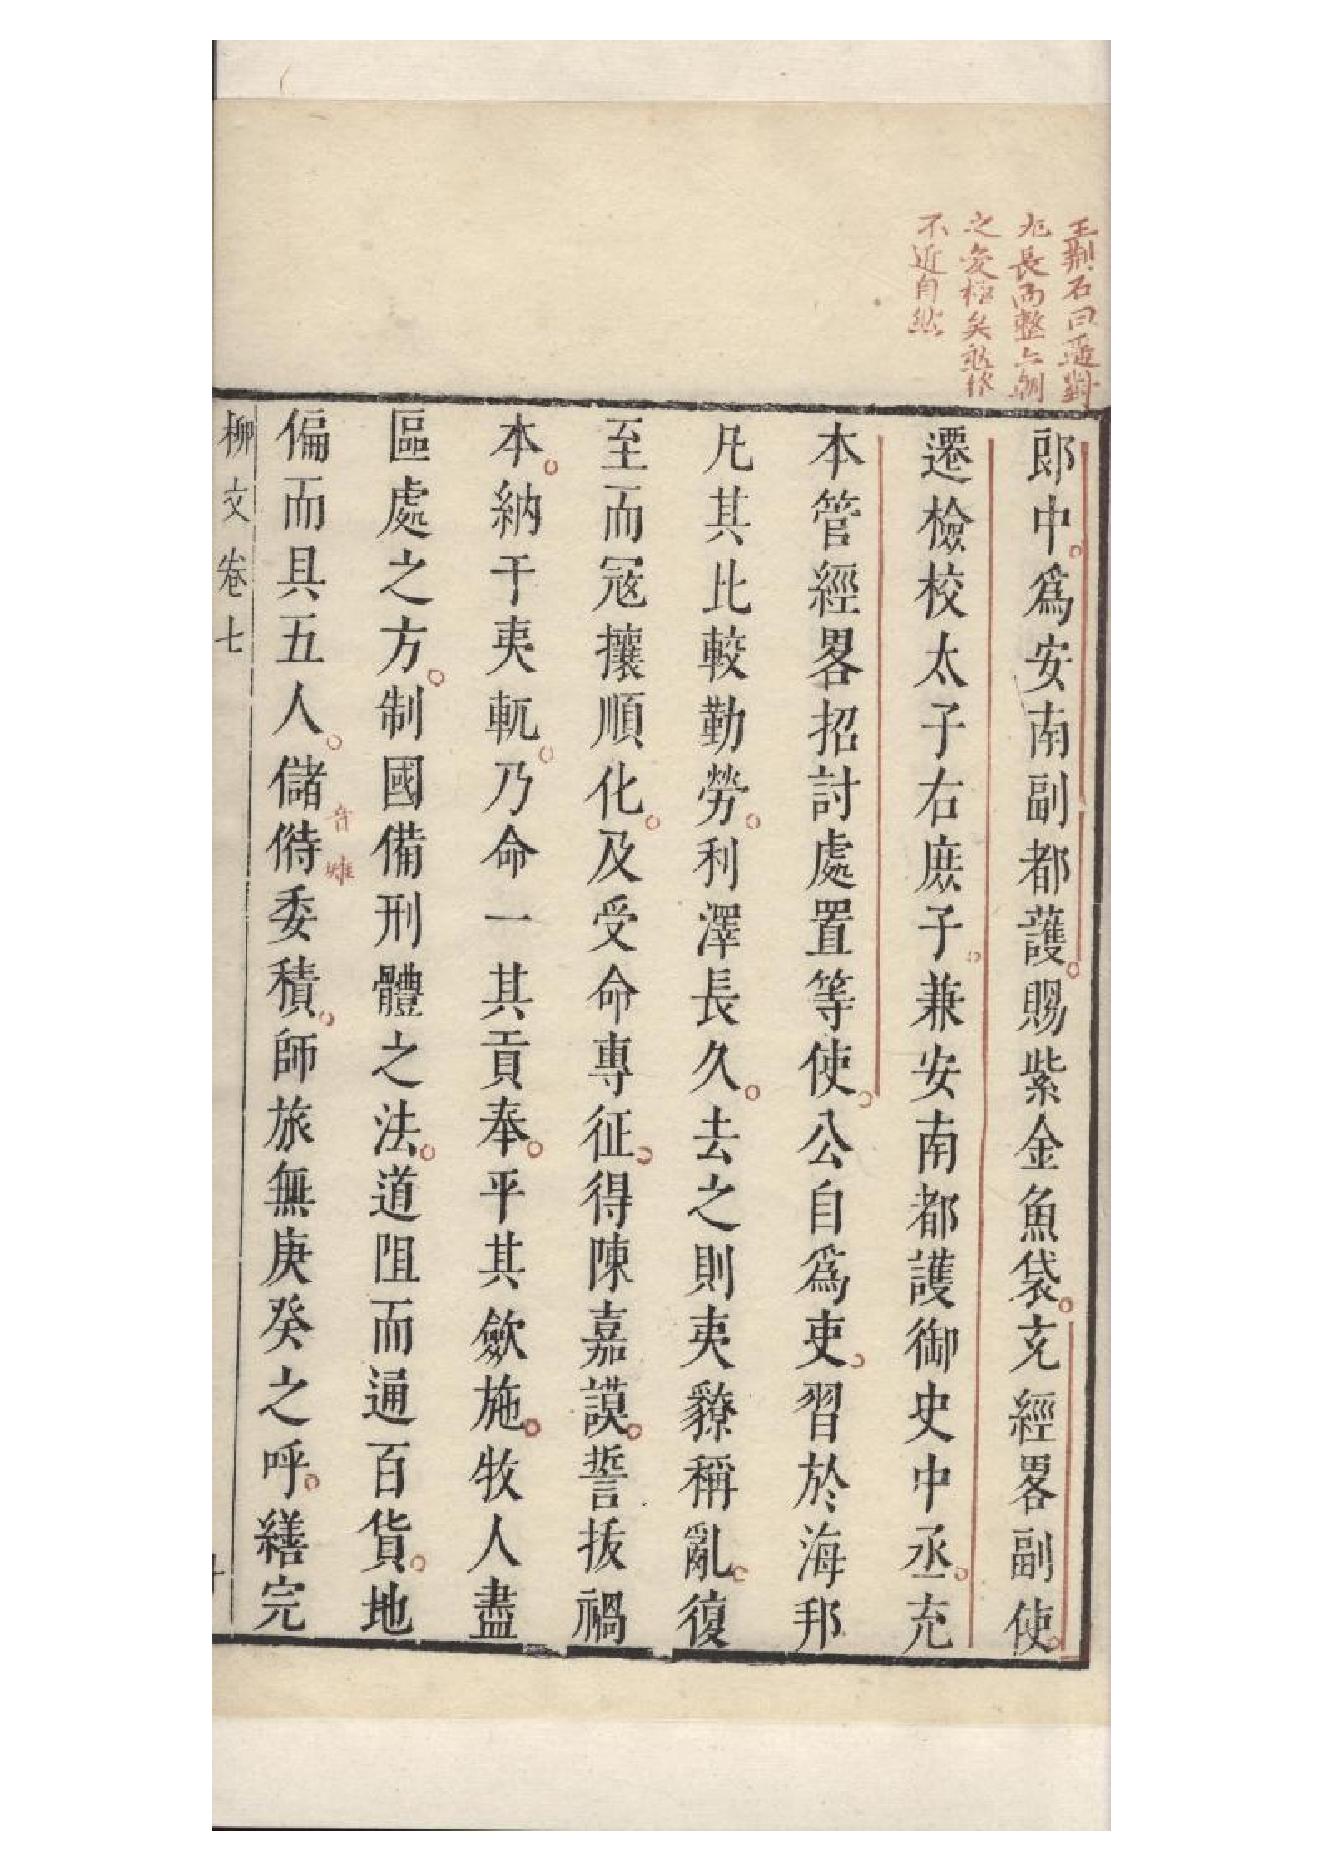 王荊石曰通對
尤長而整六朝
之變極矣然終
不近自然
郎中爲安南副都護賜紫金魚袋充經畧副使
遷檢校太子右庶子兼安南都護御史中丞充
本管經畧招討處置等使公自爲吏習於海邦
凡其比較勤勞利澤長久去之則夷獠稱亂復
至而冦攘順化及受命專征得陳嘉謨誓拔禍
本納于夷軌乃命一其貢奉平其歛施牧人盡
區處之方制國備刑體之法道阻而通百貨地
偏而具五人儲偫委積師旅無庚癸之呼繕完
音雉
柳文卷七
十